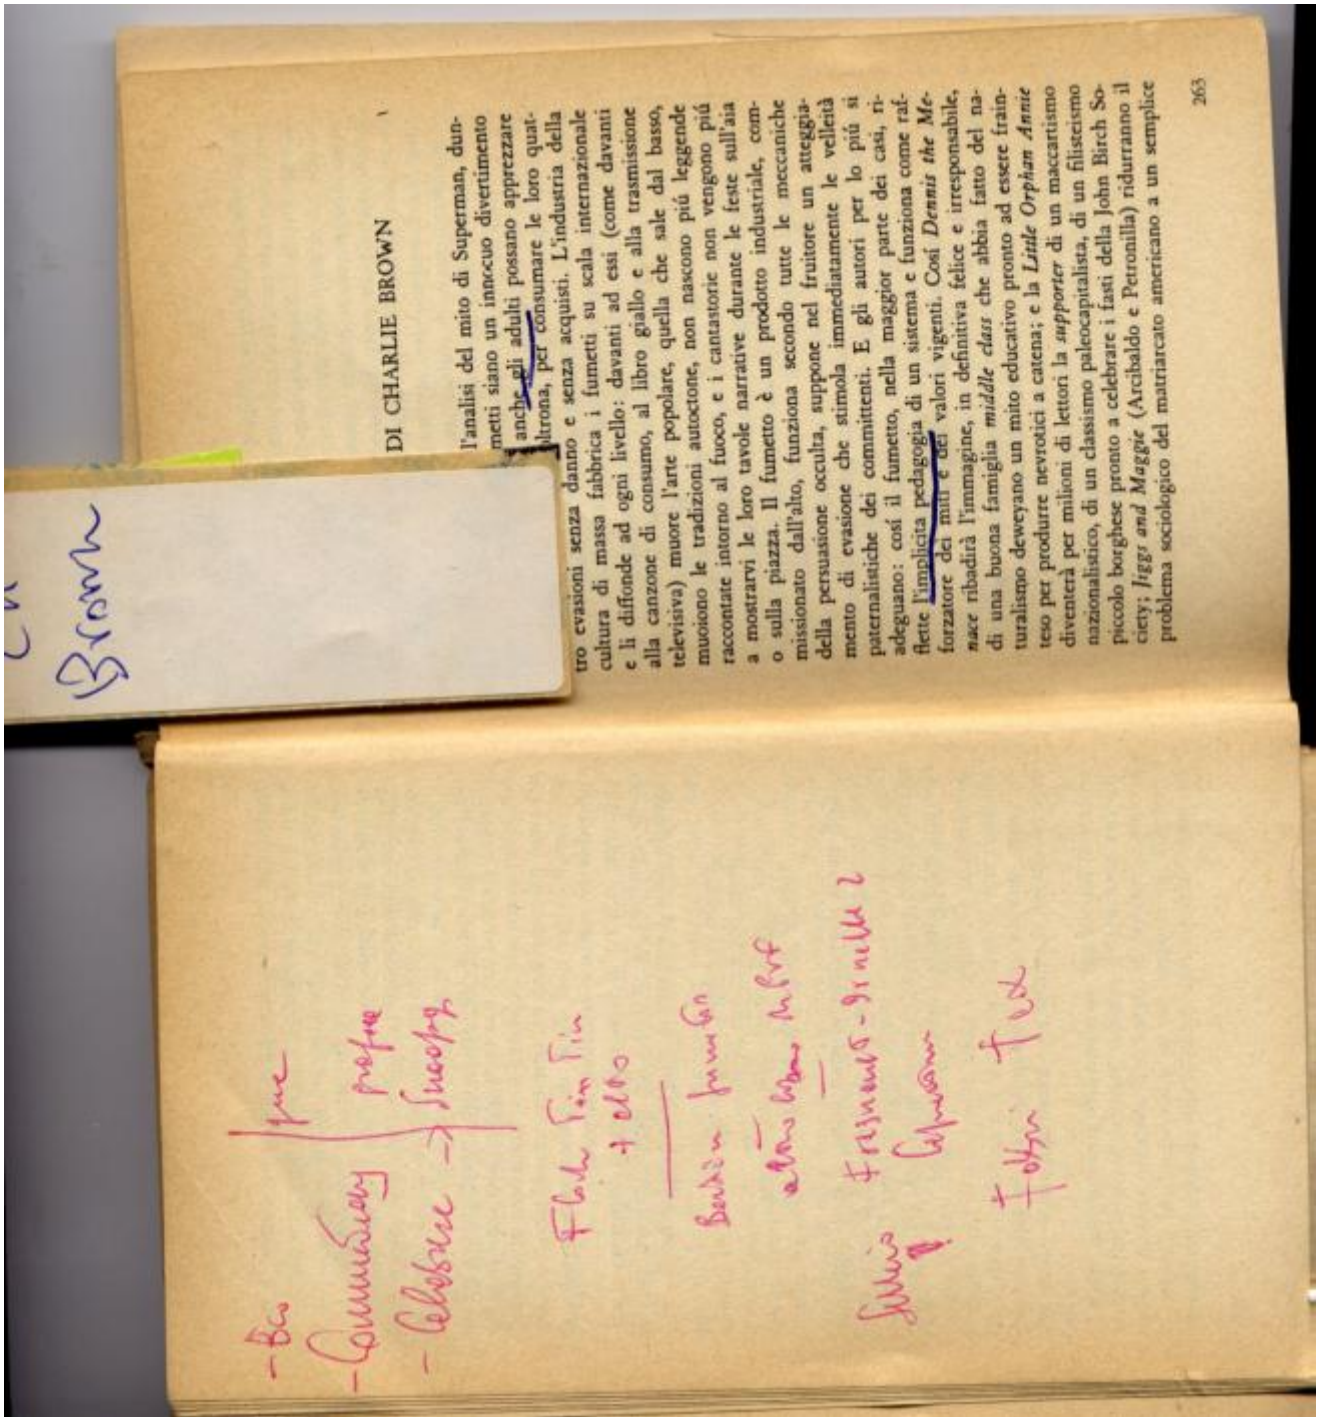 Brown
DI CHARLIE BROWN
l'analisi del mito di Superman, dun-
metti siano un innocuo divertimento
anche gli adulti possano apprezzare
oltrona, per consumare le loro quat-
tro evasioni senza danno e senza acquisti. L'industria della
cultura di massa fabbrica i fumetti su scala internazionale
e li diffonde ad ogni livello: davanti ad essi (come davanti
alla canzone di consumo, al libro giallo e alla trasmissione
televisiva) muore l'arte popolare, quella che sale dal basso,
muoiono le tradizioni autoctone, non nascono piú leggende
raccontate intorno al fuoco, e i cantastorie non vengono piú
a mostrarvi le loro tavole narrative durante le feste sull'aia
o sulla piazza. Il fumetto è un prodotto industriale, com-
missionato dall'alto, funziona secondo tutte le meccaniche
della persuasione occulta, suppone nel fruitore un atteggia-
mento di evasione che stimola immediatamente le velleità
paternalistiche dei committenti. E gli autori per lo piú si
adeguano: cosí il fumetto, nella maggior parte dei casi, ri-
flette l'implicita pedagogia di un sistema e funziona come raf-
forzatore dei miti e dei valori vigenti. Cosí Dennis the Me-
nace ribadirà l'immagine, in definitiva felice e irresponsabile,
di una buona famiglia middle class che abbia fatto del na-
turalismo deweyano un mito educativo pronto ad essere frain-
teso per produrre nevrotici a catena; e la Little Orphan Annie
diventerà per milioni di lettori la supporter di un maccartismo
nazionalistico, di un classismo paleocapitalista, di un filisteismo
piccolo borghese pronto a celebrare i fasti della John Birch So-
ciety; Jiggs and Maggie (Arcibaldo e Petronilla) ridurranno il
problema sociologico del matriarcato americano a un semplice
263
Tin Tin
Tex